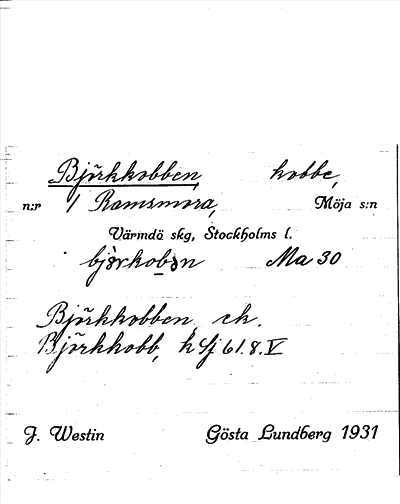 Björkkobben, kobbe,
n:r 1 Ramsmora, Möja s:n
Värmdö skg, Stockholms l.
bjö̀rkobən Ma 30
Björkkobben, ek.
Björkkobb, h Sj 61.8.V
J. Westin Gösta Lundberg 1931